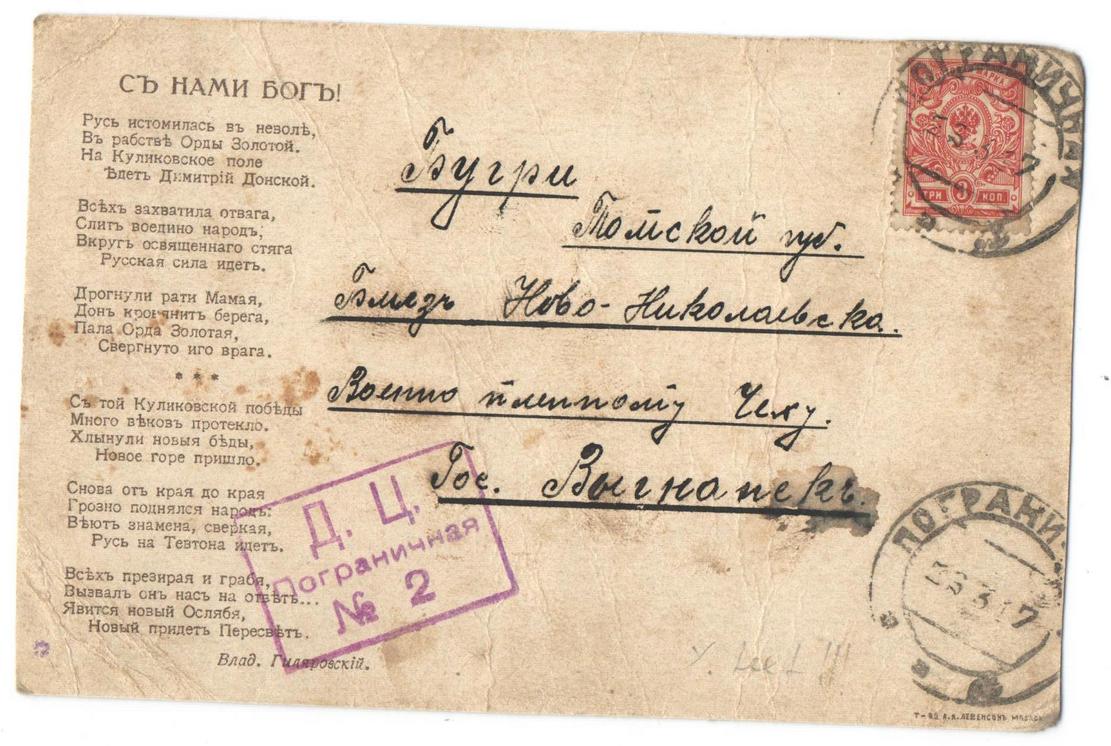 СЪ НАМИ БОГЪ!
Русь истомилась въ неволѣ,
Въ рабствѣ Орды Золотой.
На Куликовское поле
Ѣдетъ Димитрій Донской.
Всѣхъ захватила отвага,
Слитъ воедино народъ,
Вкругъ освященнаго стяга
Русская сила идетъ.
Дрогнули рати Мамая,
Донъ кровянитъ берега,
Пала Орда Золотая,
Свергнуто иго врага.
* * *
Съ той Куликовской побѣды
Много вѣковъ протекло.
Хлынули новыя бѣды,
Новое горе пришло.
Снова отъ края до края
Грозно поднялся народъ:
Вѣютъ знамена, сверкая,
Русь на Тевтона идетъ.
Всѣхъ презирая и грабя,
Вызвалъ онъ насъ на отвѣтъ...
Явится новый Ослябя,
Новый придетъ Пересвѣтъ.
Влад. Гиляровскій.
Бугри
Томской губ.
Близъ Ново-Николаевска.
Военно пленному Чеху.
Гос.
ПОГРАНИЧНАЯ
МАРКА
ТРИ 3 КОП
Д. Ц.
Пограничная
№ 2
ПОГРАНИ
3 17
Т-во А.А.ЛЕВЕНСОНЪ МОСКВА